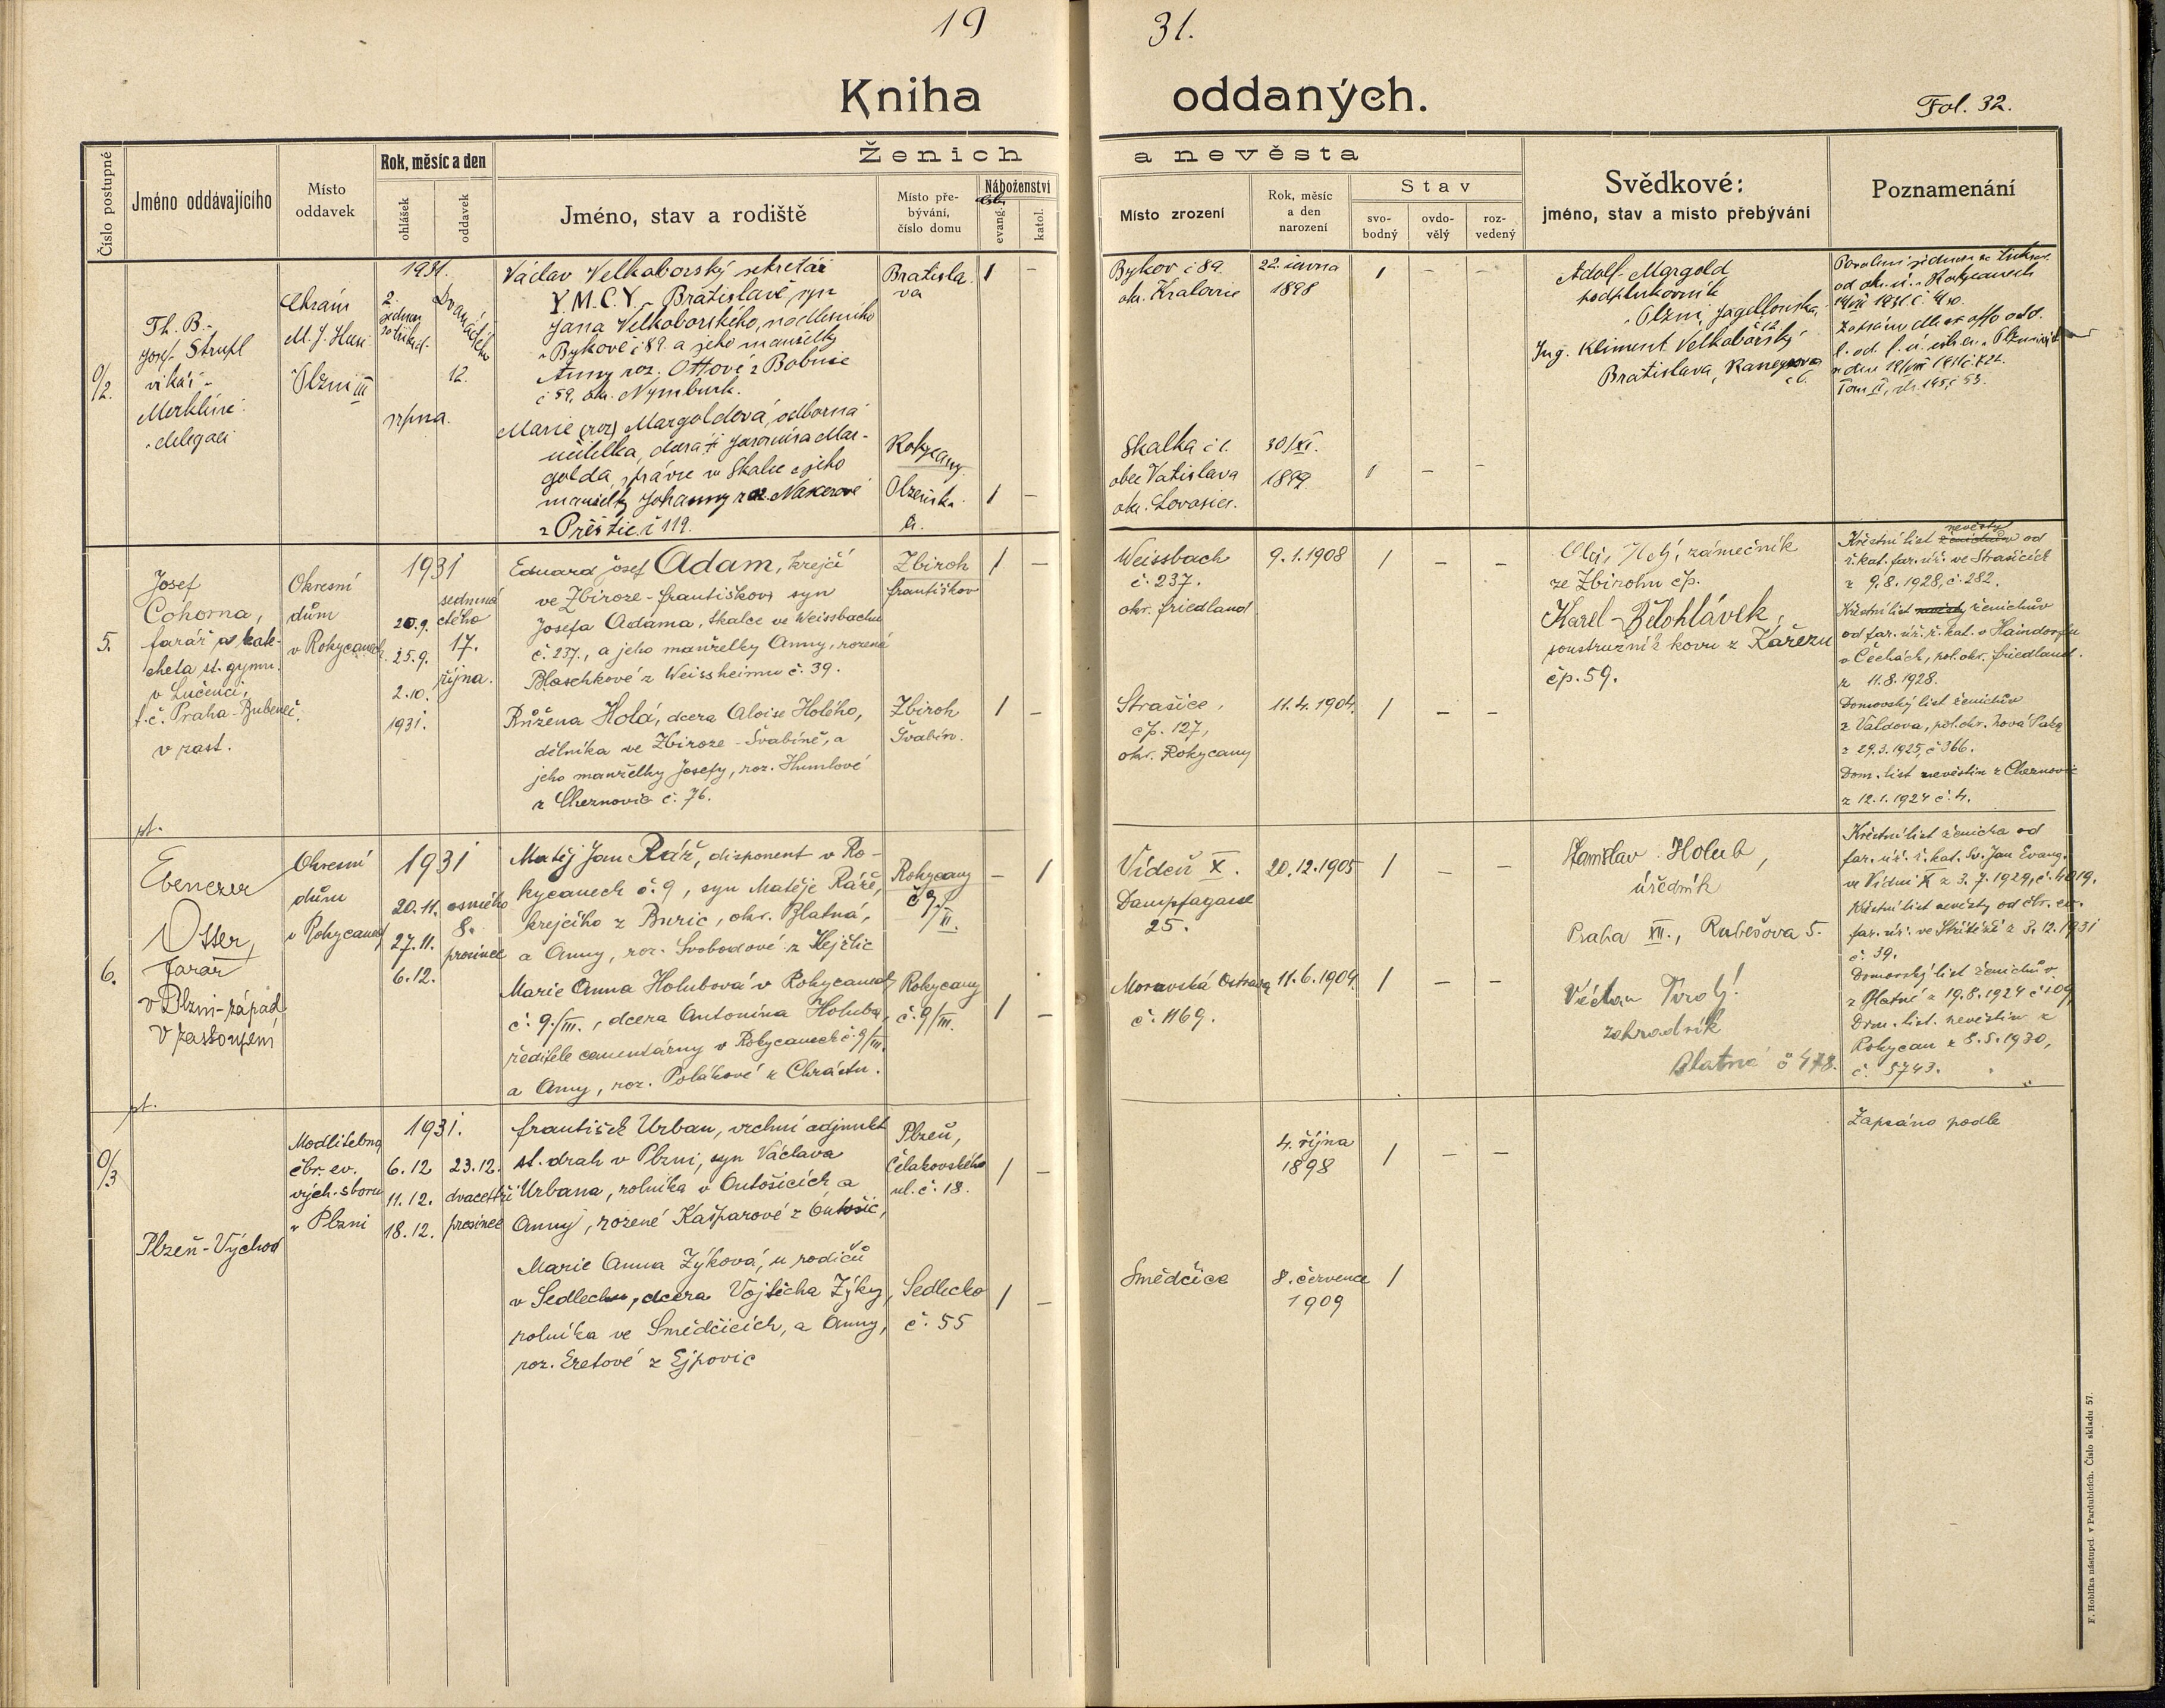 19 31.
Kniha oddaných.
Fol. 32.
Číslo postupné
Jméno oddávajícího
Místo
oddavek
Rok, měsíc a den
ohlášek
oddavek
Ženich
Jméno, stav a rodiště
Místo pře-
bývání,
číslo domu
Náboženství
evang.
katol.
a nevěsta
Místo zrození
Rok, měsíc
a den
narození
Stav
svo-
bodný
ovdo-
vělý
roz-
vedený
Svědkové:
jméno, stav a místo přebývání
Poznamenání
0/2.
Th. B.
Josef Strupl
vikář
Merklíně
delegací
Chrám
M. J. Husi
Plzni III
1931.
2.
12.
srpna.
Václav Velkoborský sekretář
Y.M.C.Y. Bratislavě, syn
Jana Velkoborského, nadlesního
v Bykově č 89. a jeho manželky
Anny roz. Ottové z Bobnic
č 59, ok. Nymburk.
Bratisla
va
1 –
Bykov č 89.
ok. Kralovic
22. února
1898
1 – –
Adolf Margold
podplukovník
Plzni, Jagellonska
č 12
Ing. Kliment Velkoborský
Bratislava,
Marie (roz) Margoldová, odborná
učitelka, dcera † Jaromíra Mar-
golda, správce ve Skalce a jeho
manželky Johanny roz.
z Přeštic č 119.
Rokycany
Plzeňská
1 –
Skalka č 1.
obec Vatislava
ok. Lovosice.
30/XI.
1899
1 – –
5.
Josef
Cohorna,
farář a kate-
cheta st. gymn.
v Lučenci,
t. č. Praha-Bubeneč.
v zast.
Okresní
dům
v Rokycanech
1931
20.9.
25.9.
2.10.
1931.
sedmnáctého
17.
října.
Eduard Josef Adam, krejčí
ve Zbiroze-Františkov, syn
Josefa Adama, tkalce ve Weissbachu
č. 237., a jeho manželky Anny, rozené
Blaschkové z Weissheimu č. 39.
Zbiroh
Františkov
1 –
Weissbach
č. 237.
okr. Friedland
9.1.1908
1 – –
zámečník
ze Zbirohu čp.
Karel Bělohlávek,
soustružník kovu z Kařezu
čp. 59.
Křestní list nevěsty od
ř. kat. far. úř. ve Strašicích
z 9.8.1928, č. 282.
Křestní list ženichův
od far. úř. ř. kat. v Haindorfu
v Čechách, pol. okr. Friedland.
z 11.8.1928.
Domovský list ženichův
z Valdova, pol. okr. Nová Paka
z 29.3.1925, č 366.
Dom. list nevěstin z Cheznovic
z 12.1.1924 č. 4.
Růžena Holá, dcera Aloise Holého,
dělníka ve Zbiroze-Švabíně, a
jeho manželky Josefy, roz. Humlové
z Cheznovic č. 76.
Zbiroh
Švabín.
1 –
Strašice,
čp. 127,
okr. Rokycany
11.4.1904.
1 – –
pt.
6.
Ebenezer
Otter,
farář
v Plzni-západ
v zastoupení
Okresní
dům
v Rokycanech
1931
20.11.
27.11.
6.12.
osmého
8.
prosince
Matěj Jan Ráž, disponent v Ro-
kycanech č. 9, syn Matěje Ráže,
krejčího z Buzic, okr. Blatná,
a Anny, roz. Svobodové z Hejžlic
Rokycany
č 9/II.
– 1
Vídeň X.
Dampfgasse
25.
20.12.1905
1 – –
Stanislav Holub,
úředník
Praha XII., Rubešova 5.
Křestní list ženicha od
far. úř. ř. kat. Sv. Jan Evang.
ve Vídni X z 3.7.1929, č. 4019.
Křestní list nevěsty od čbr. ev.
far. úř. ve Střítěži z 3.12.1931
č. 39.
Domovský list ženichův
z Blatné z 19.8.1924 č 109,
Dom. list. nevěstin z
Rokycan z 8.5.1930,
č. 5743.
Marie Anna Holubová v Rokycanech
č. 9./III., dcera Antonína Holuba,
ředitele cementárny v Rokycanech č. 9/III.
a Anny, roz. Polákové z Chrástu.
Rokycany
č. 9/III.
1 –
Moravská Ostrava
č. 1169.
11.6.1909
1 – –
Václav Tvrdý
zahradník
Blatná č 478.
pt.
0/3
Plzeň-Východ
Modlitebna
čbr. ev.
vých. sboru
v Plzni
1931.
6.12
11.12.
18.12.
23.12.
dvacetři
prosince
František Urban, vrchní adjunkt
st. drah v Plzni, syn Václava
Urbana, rolníka v Outošicích, a
Anny, rozené Kašparové z Outošic,
Plzeň,
Čelakovského
ul. č. 18.
1 –
4. října
1898
1 – –
Zapsáno podle
Marie Anna Zýková, u rodičů
v Sedlecku, dcera Vojtěcha Zýky,
rolníka ve Smědčicích, a Anny,
roz. Eretové z Ejpovic
Sedlecko
č. 55
1 –
Smědčice
8. července
1909
1
F. Hoblíka nástupci v Pardubicích. Číslo skladu 57.